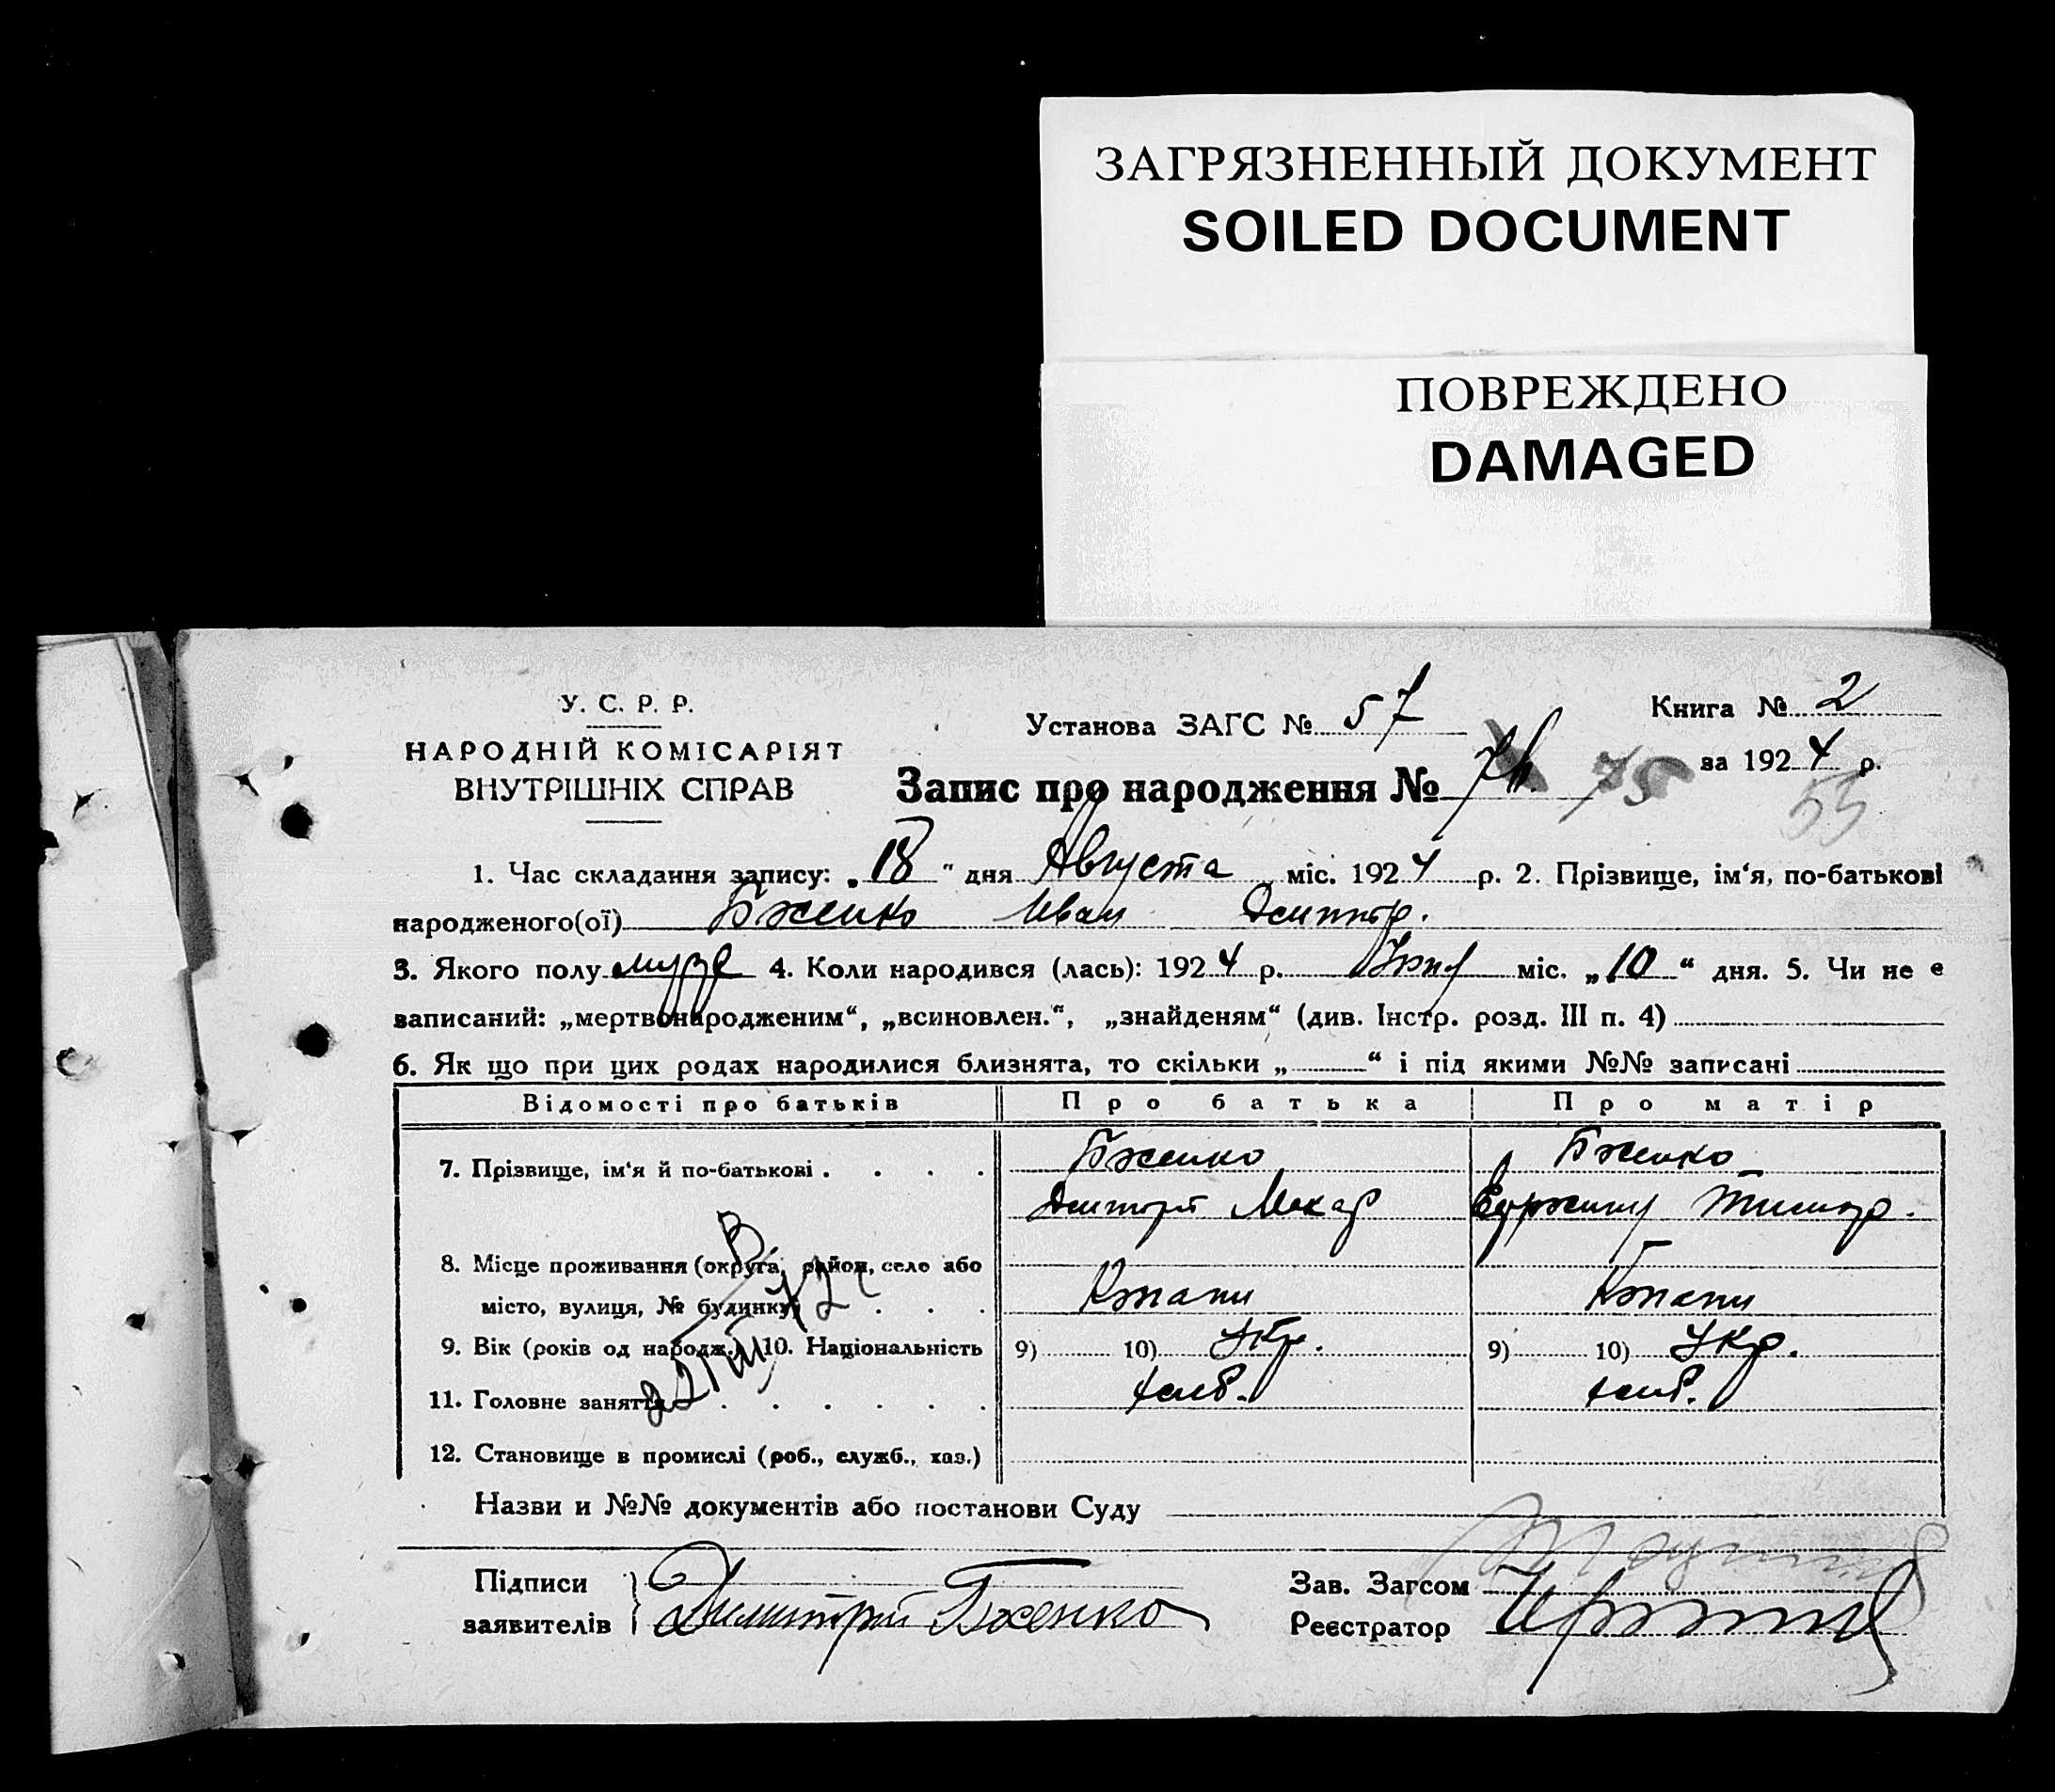 ЗАГРЯЗНЕННЫЙ ДОКУМЕНТ
SOILED DOCUMENT
ПОВРЕЖДЕНО
DAMAGED
У. С. Р. Р.
НАРОДНІЙ КОМІСАРІЯТ
ВНУТРІШНІХ СПРАВ
Установа ЗАГС № 57
Книга № 2
за 1924 р.
Запис про народження № 75
53
1. Час складання запису: „18" дня Августа міс. 1924 р. 2. Прізвище, ім'я, по-батькові
народженого(ої) Бженко Иван Дмитр.
3. Якого полу муж 4. Коли народився (лась): 1924 р. міс. „10" дня. 5. Чи не є
записаний: „мертвонародженим", „всиновлен.", „знайденям" (див. Інстр. розд. III п. 4)
6. Як що при цих родах народилися близнята, то скільки „ " і під якими №№ записані
Відомості про батьків Про батька Про матір
7. Прізвище, ім'я й по-батькові . . . . Бженко Бженко
Дмитрий Макар
8. Місце проживання (округа, район, село або
місто, вулиця, № будинку) . . .
9. Вік (років од народж.) 10. Національність 9) 10) Укр. 9) 10) Укр.
11. Головне заняття . . . . . .
12. Становище в промислі (роб., служб., хаз.)
Назви и №№ документів або постанови Суду
Підписи
заявителів Димитрий Бженко
Зав. Загсом
Реєстратор